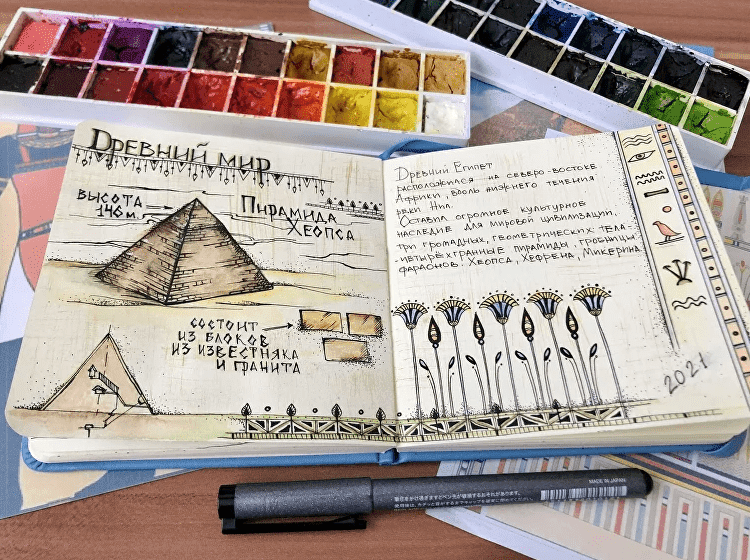 Древний мир
высота
146 м.
Пирамида
Хеопса
состоит
из блоков
из известняка
и гранита
Древний Египет
расположился на северо-востоке
Африки, вдоль нижнего течения
реки Нил.
Оставил огромное культурное
наследие для мировой цивилизации.
Три громадных, геометрических тела-
-четырёхгранные пирамиды, гробницы
фараонов: Хеопса, Хефрена, Микерина.
2021
MADE IN JAPAN